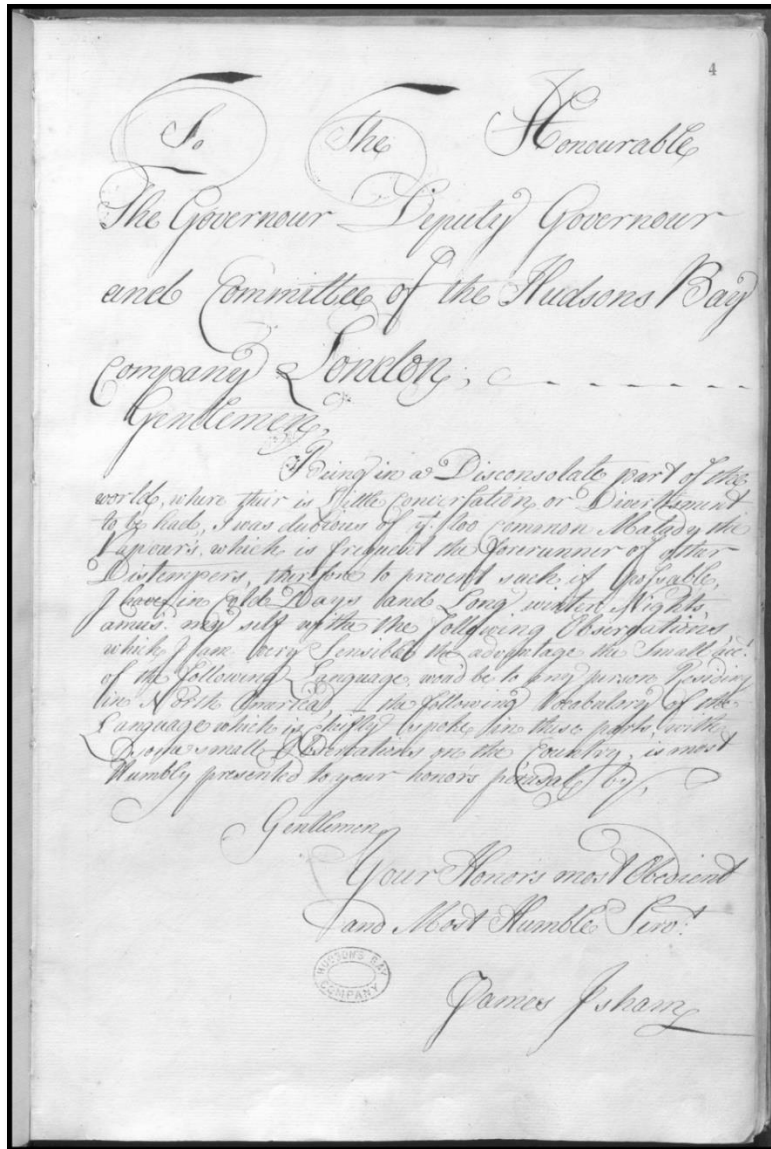 4
To The Honourable
The Governour Deputy Governour
and Committee of the Hudsons Bay
Company London,
Gentlemen,
Being in a Disconsolate part of the
world, where their is Little Conversation or Divertisment
to be had, I was dubious of yt. too common Malady the
Vapours, which is frequent the forerunner of other
Distempers, therefore to prevent such if possable,
I have in Cold Days and Long winter Nights,
amus'd my self with the following Observations
which I am very Sensible the advantage the Small acct.
of the following Language, woud be to any person Residing
in North America, the following Vocabulary of the
Language which is chiefly spoke in these parts, with
some small Observations on the Country, is most
Humbly presented to your honors perusal by,
Gentlemen
Your Honors most Obedient
and Most Humble Servt:
HUDSON'S BAY
COMPANY
James Isham